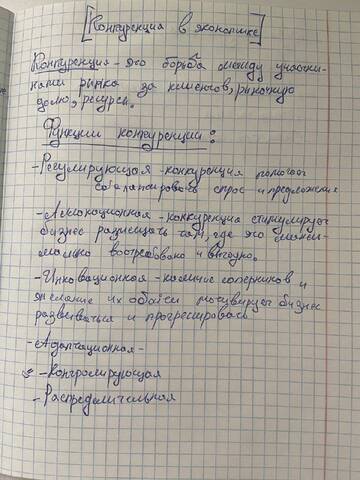 [Конкуренция в экономике]
Конкуренция - это борьба между участни-
ками рынка за клиентов, рыночную
долю, ресурсы.
Функции конкуренции:
- Регулирующая - конкуренция помогает
сбалансировать спрос и предложение
- Аллокационная - конкуренция стимулирует
бизнес размещать там, где это макси-
мально востребовано и выгодно.
- Инновационная - наличие соперников и
желание их обойти мотивирует бизнес
развиваться и прогрессировать
- Адаптационная -
- Контролирующая
- Распределительная